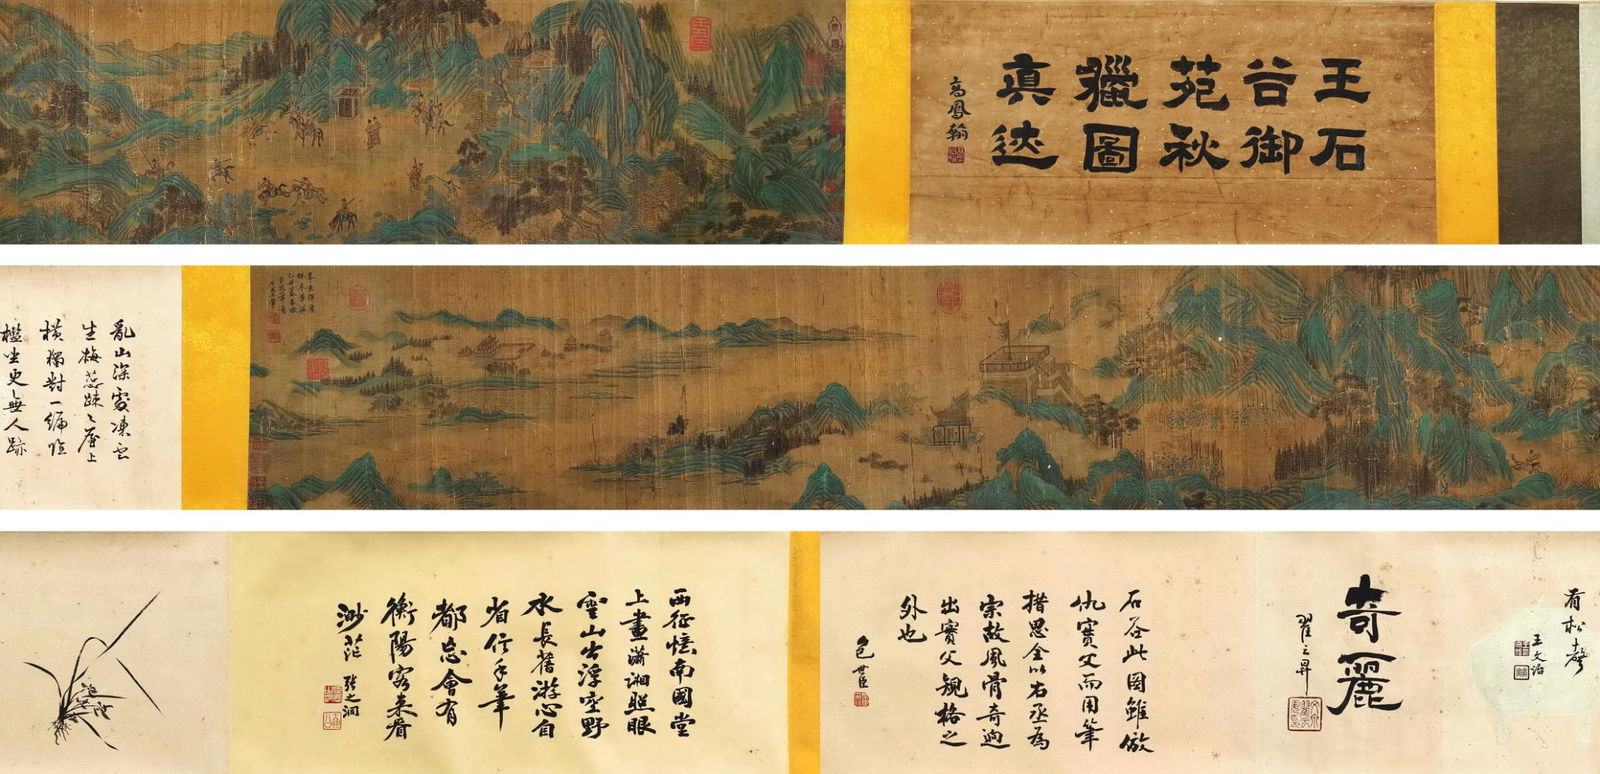 王石
谷御
苑秋
獵圖
真迹
高鳳翰
亂山深處凍雲
生梅蕊疎々屋上
横獨對一編
檻坐更無人跡
有松聲
王文治
奇麗
翟之昇
石谷此圖雖倣
仇實父而用筆
措思全以右丞為
宗故風骨奇逈
出實父規格之
外也
包世臣
西征憶南國堂
上畫瀟湘照眼
雲山出浮空野
水長舊游心自
省信手筆
都忘會有
衡陽客來看
渺茫
張之洞